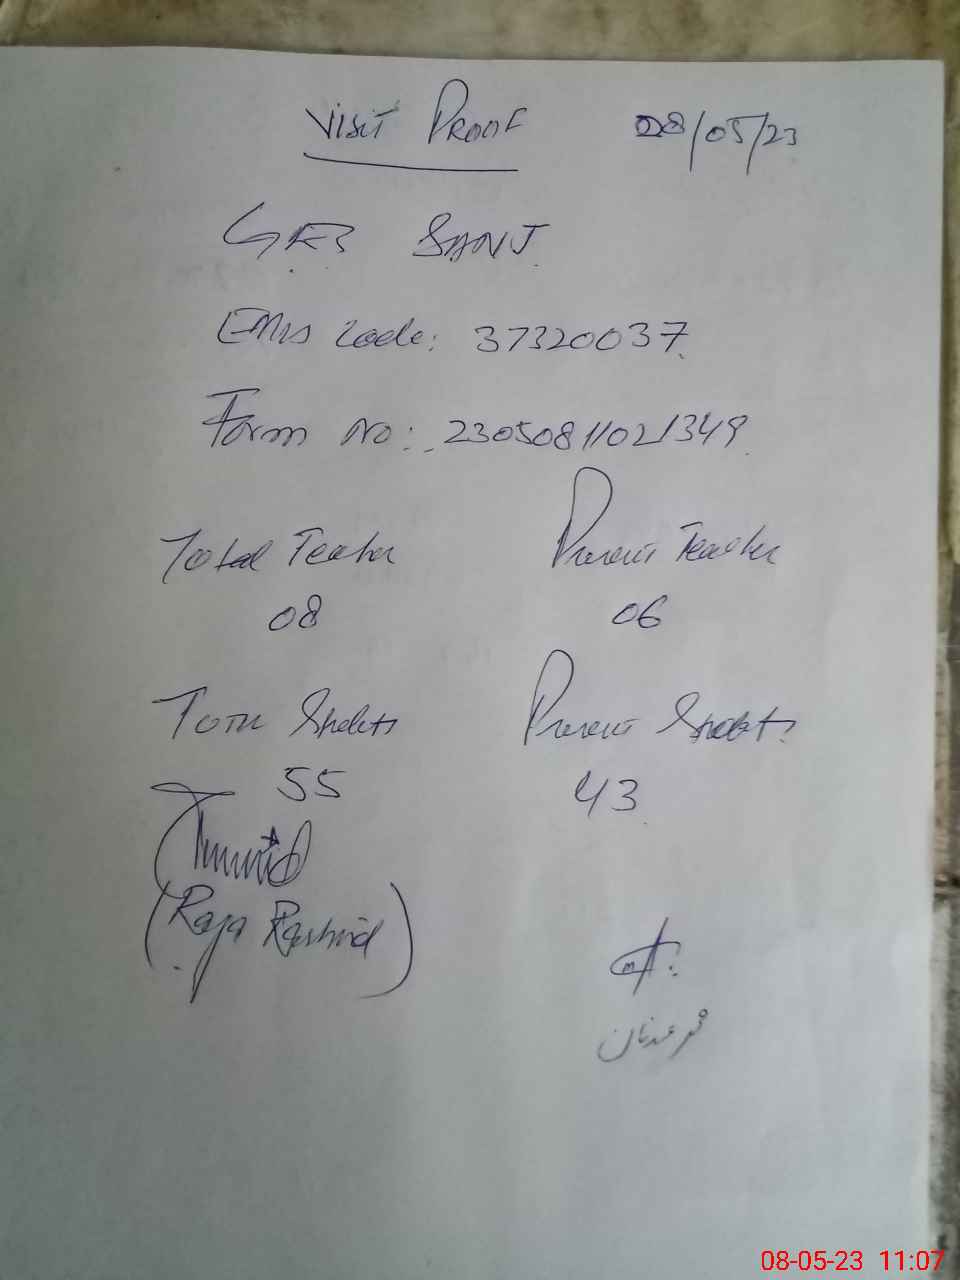 Visit Proof 08/05/23
SANJ
Emis Code: 37320037
Form No: 23050811021349
Total Teacher Present Teacher
08 06
Total Students Present Students
55 43
(Raja Rashid)
محمد عدنان
08-05-23 11:07